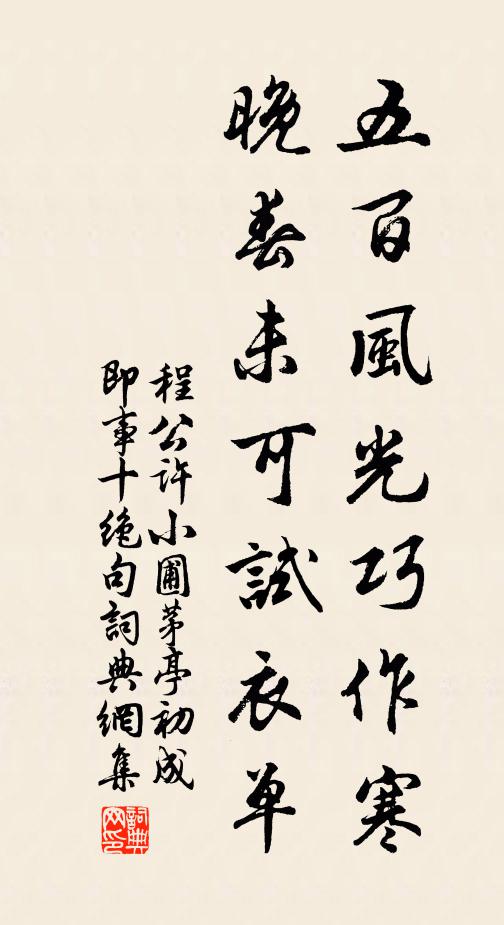 五百風光巧作寒
晚春未可試衣單
程公許小圃茅亭初成
即事十絶句詞典網集
詞典
网印